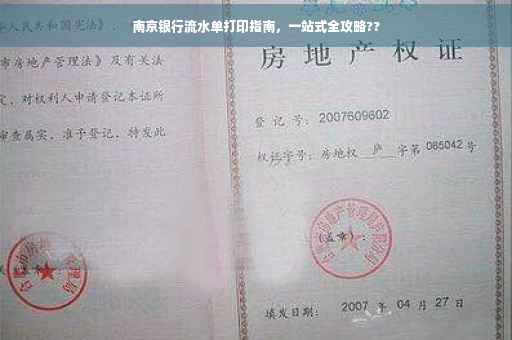 南京银行流水单打印指南，一站式全攻略??
人民共和国宪法》、
市房地产管理法》及有关法
定，对权利人申请登记本证所
审查属实，准予登记，特发此
房地产权证
登记号：2007609602
权证字号：房地权 庐 字第 085042 号
(盖章)：
填发日期：2007 年 04 月 27 日